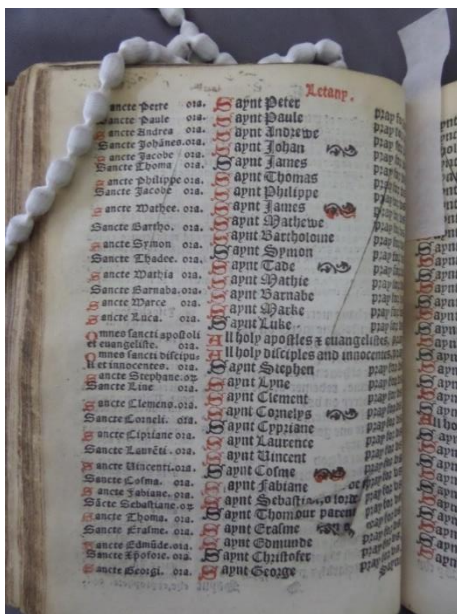 Letany.
Sancte Petre ora.
Sancte Paule ora.
Sancte Andrea ora.
Sancte Johānes. ora.
Sancte Jacobe ora.
Sancte Thoma ora.
Sancte Philippe ora.
Sancte Jacobe ora.
Sancte Mathee. ora.
Sancte Bartho. ora.
Sancte Symon ora.
Sancte Thadee. ora.
Sancte Mathia ora.
Sancte Barnaba. ora.
Sancte Marce ora.
Sancte Luca. ora.
Omnes sancti apostoli
et euangeliste. ora.
Omnes sancti discipu
li et innocentes. ora.
Sancte Stephane. ora
Sancte Line ora.
Sancte Clemens. ora.
Sancte Corneli. ora.
Sancte Cipriane ora.
Sancte Laurēti. ora.
Sancte Uincenti. ora.
Sancte Cosma. ora.
Sancte Fabiane. ora.
Sācte Sebastiane. ora
Sancte Thoma. ora.
Sancte Erasme. ora.
Sancte Edmūde. ora.
Sancte Xpofore. ora.
Sancte Georgi. ora.
Saynt Peter pray for
Saynt Paule pray for
Saynt Andrewe pray for
Saynt Johan pray for
Saynt James pray for
Saynt Thomas pray for
Saynt Philippe pray for
Saynt James pray for
Saynt Mathewe pray for
Saynt Bartholome pray for
Saynt Symon pray for
Saynt Tade pray for
Saynt Mathie pray for
Saynt Barnabe pray for
Saynt Marke pray for
Saynt Luke pray for
All holy apostles & euangelistes, pray
All holy disciples and innocentes, pray
Saynt Stephen pray for
Saynt Lyne pray for
Saynt Clement pray for
Saynt Cornelys pray for
Saynt Cypriane pray for
Saynt Laurence pray for
Saynt Uincent pray for
Saynt Cosme pray for
Saynt Fabiane
Saynt Sebastian
Saynt Thom
Saynt Erasme
Saynt Edmunde
Saynt Christofer
Saynt George